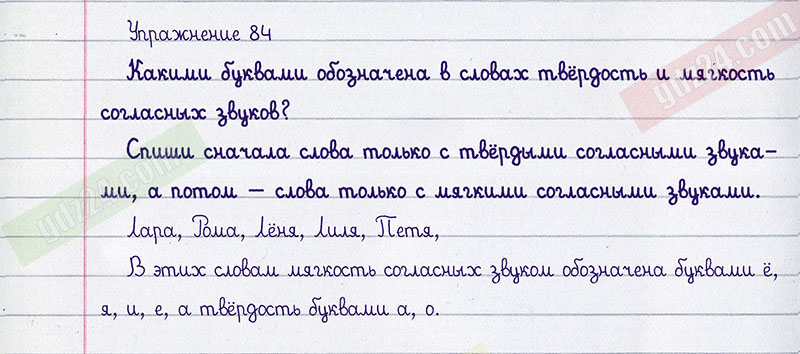 Упражнение 84
Какими буквами обозначена в словах твёрдость и мягкость
согласных звуков?
Спиши сначала слова только с твёрдыми согласными звука-
ми, а потом — слова только с мягкими согласными звуками.
Лара, Рома, Лёня, Лиля, Петя,
В этих словам мягкость согласных звуком обозначена буквами ё,
я, и, е, а твёрдость буквами а, о.
gdz24.com
gdz24.com